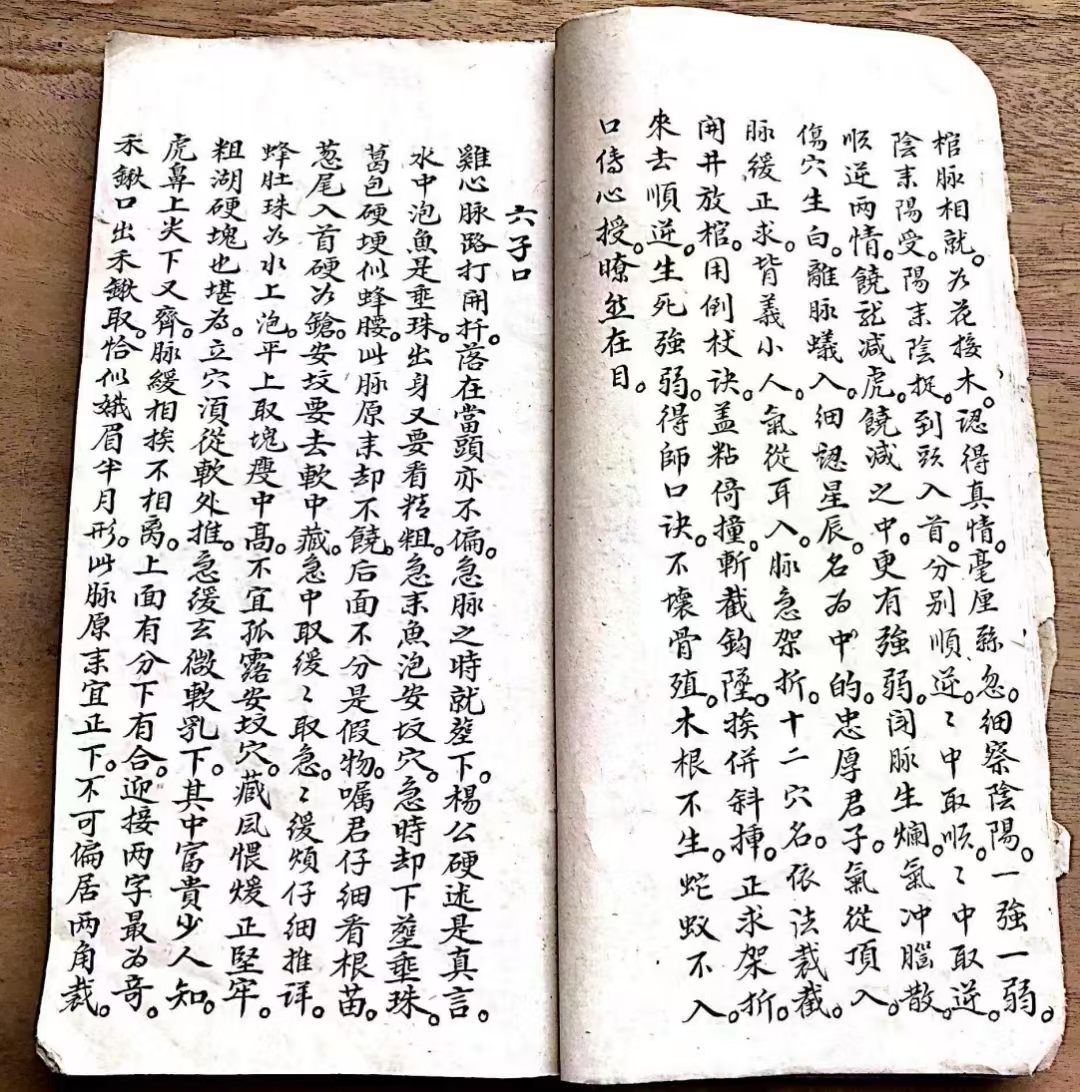 棺脉相就。为花接木。認得真情。毫厘繇忽。細察陰陽。一強一弱。
陰耒陽受。陽耒陰捉。到頭入首。分别順逆。〻中取順。〻中取逆。
順逆两情。饒龍減虎。饒減之中。更有強弱。闯脉生爛。氣冲腦散。
傷穴生白。離脉蟻入。細認星辰。名为中的。忠厚君子。氣從頂入。
脉緩正求。背義小人。氣從耳入。脉急架折。十二穴名。依法裁截。
開井放棺。用倒杖诀。盖粘倚撞。斬截鈎墜。挨併斜揷。正求架折。
來去順逆。生死強弱。得師口诀。不壞骨殖。木根不生。蛇蚁不入。
口傳心授。瞭然在目。
六子口
雞心脉路打開扦。落在當頭亦不偏。急脉之時就塟下。楊公硬述是真言。
水中泡魚是垂珠。出身又要看精粗。急耒魚泡安坟穴。急時却下塟垂珠。
葛包硬埂似蜂腰。此脉原耒却不饒。后面不分是假物。嘱君仔细看根苗。
葱尾入首硬为鎗。安坟要去軟中藏。急中取缓〻取急。〻缓煩仔细推详。
蜂肚珠为水上泡。平上取塊瘦中高。不宜孤露安坟穴。藏風偎煖正堅牢。
粗湖硬塊也堪为。立穴須從軟外推。急缓玄微軟乳下。其中富貴少人知。
虎鼻上尖下又齊。脉緩相挨不相离。上面有分下有合。迎接两字最为奇。
禾鍬口出禾鍬取。恰似娥眉半月形。此脉原耒宜正下。不可偏居两角裁。